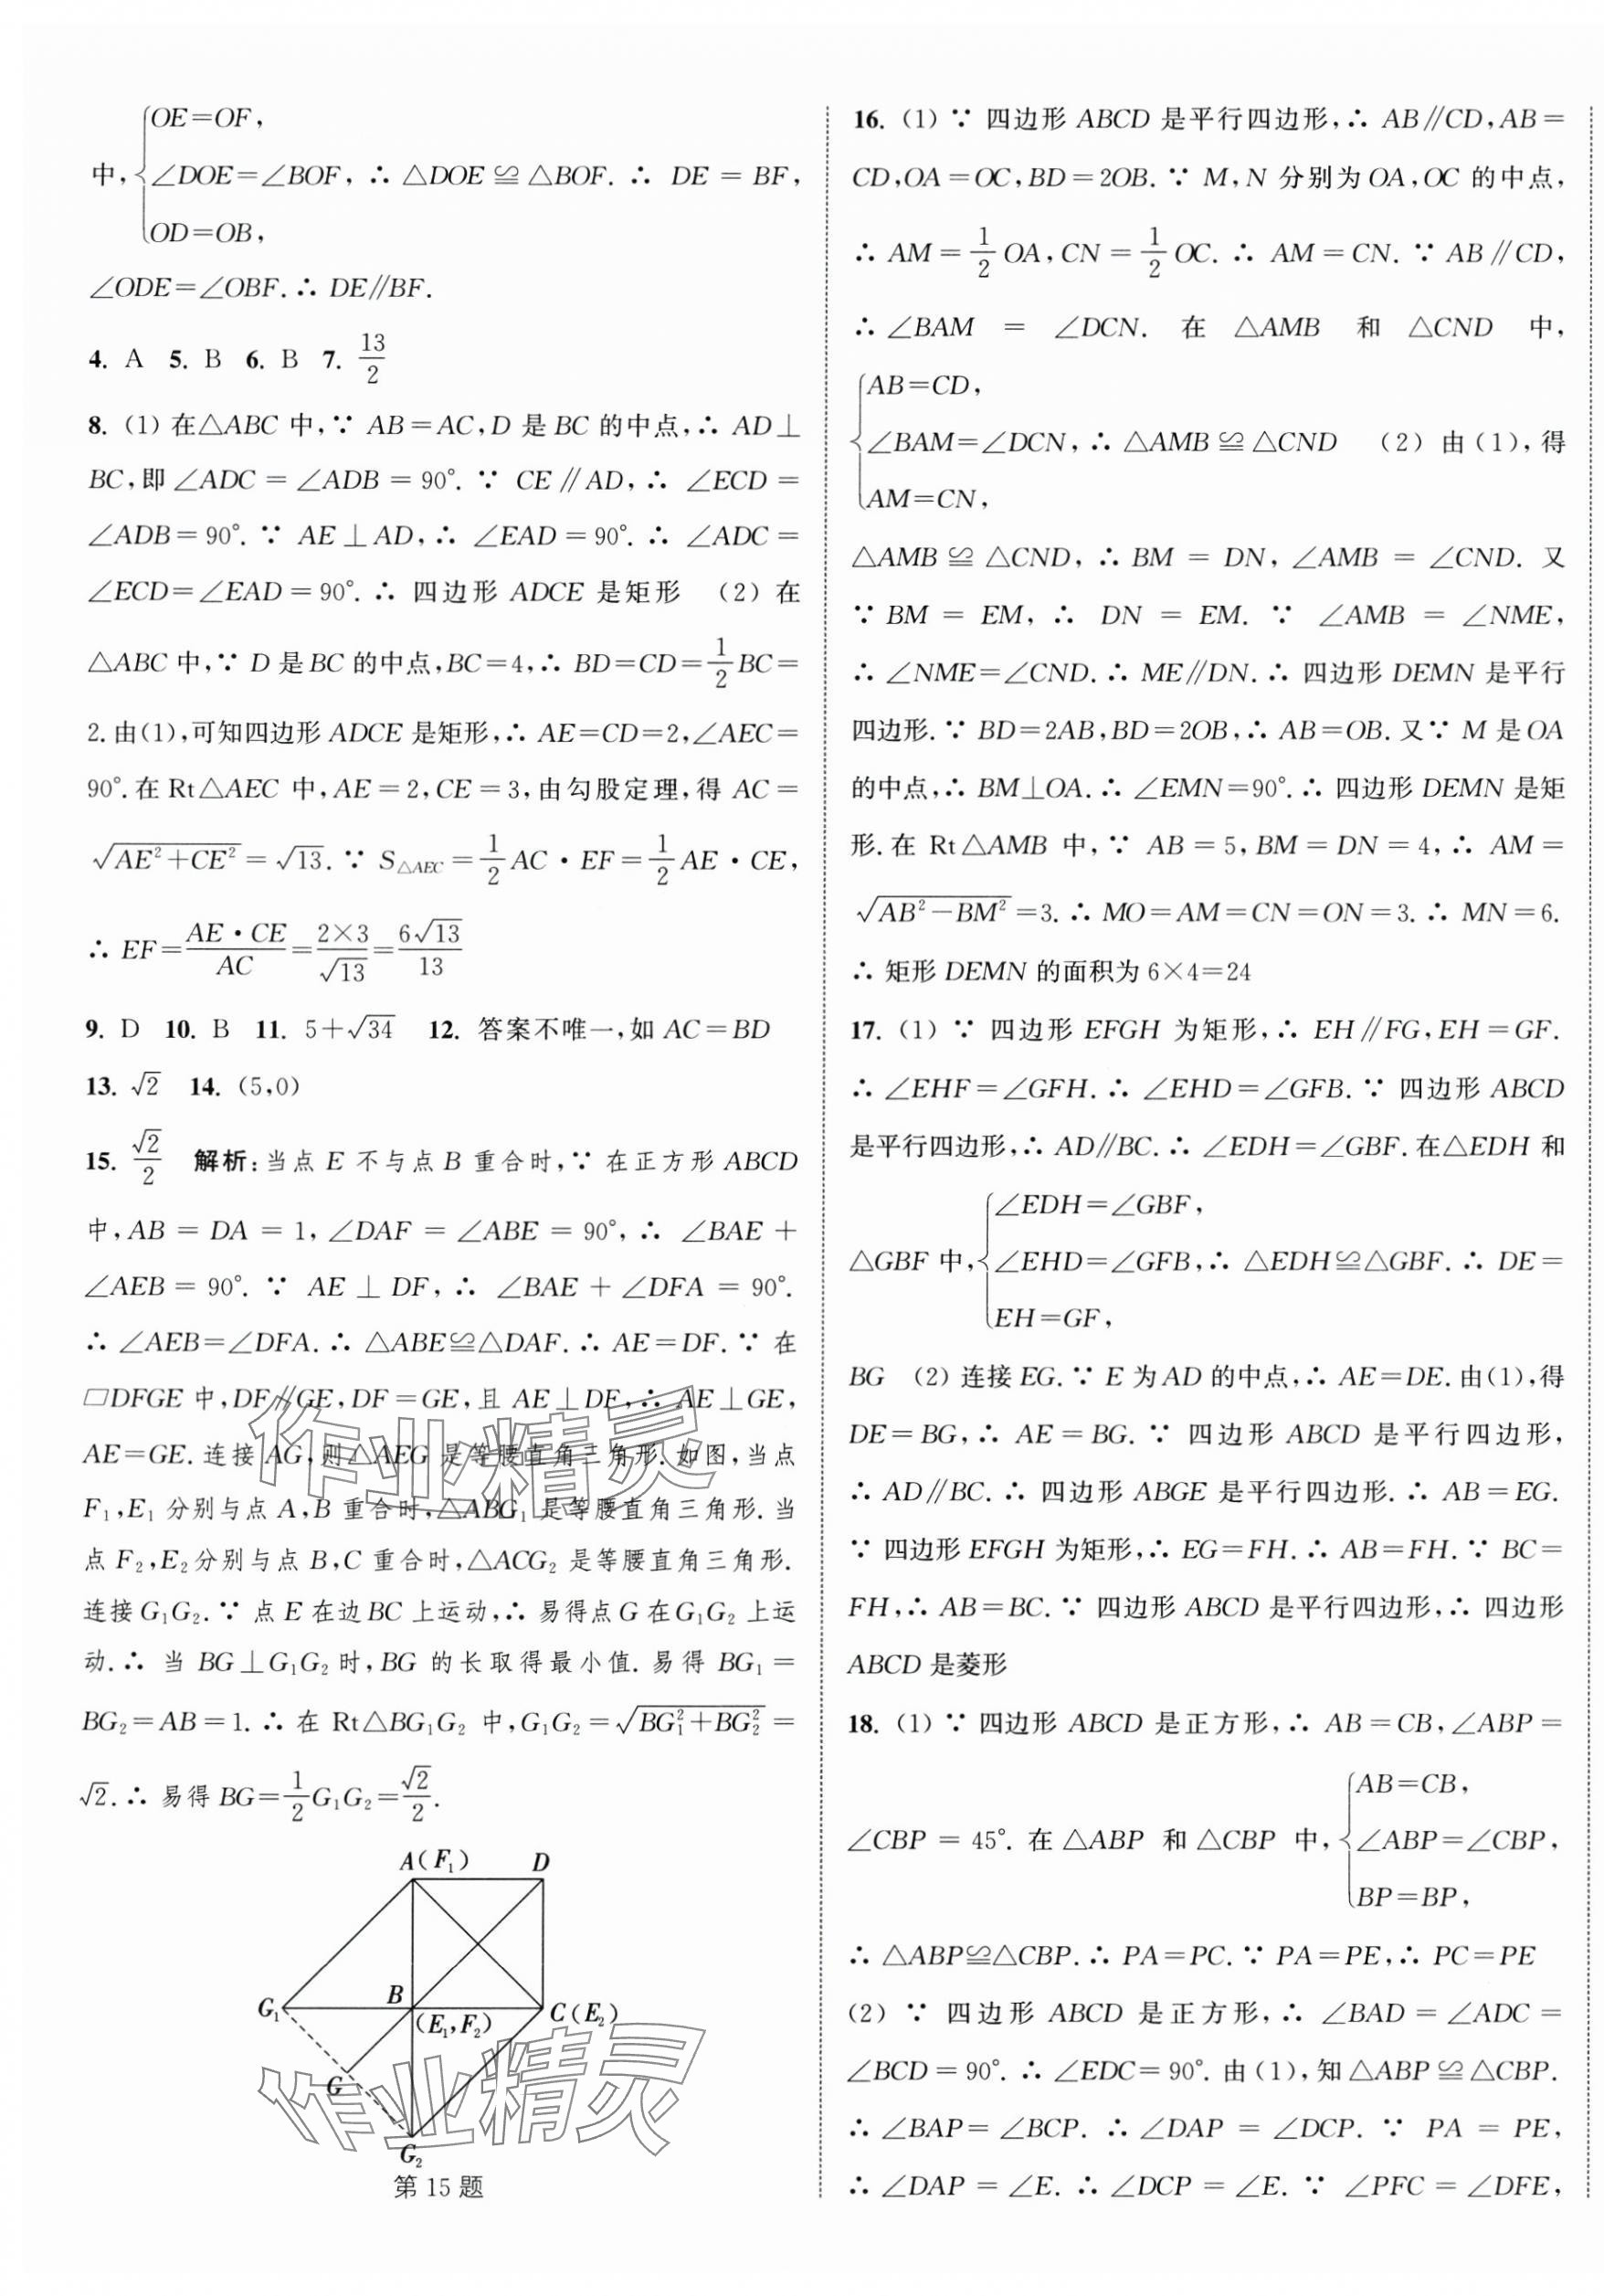 中,{OE=OF,
∠DOE=∠BOF, ∴ △DOE ≌ △BOF. ∴ DE = BF,
OD=OB,
∠ODE=∠OBF. ∴ DE∥BF.
4. A 5. B 6. B 7. 13/2
8. (1) 在△ABC 中,∵ AB=AC,D 是 BC 的中点,∴ AD⊥
BC,即 ∠ADC = ∠ADB = 90°. ∵ CE∥AD,∴ ∠ECD =
∠ADB = 90°. ∵ AE⊥AD,∴ ∠EAD = 90°. ∴ ∠ADC =
∠ECD=∠EAD=90°. ∴ 四边形 ADCE 是矩形 (2) 在
△ABC 中,∵ D 是 BC 的中点,BC=4,∴ BD=CD=1/2BC=
2. 由(1),可知四边形 ADCE 是矩形,∴ AE=CD=2,∠AEC=
90°. 在 Rt△AEC 中,AE=2,CE=3,由勾股定理,得 AC=
√(AE²+CE²)=√13. ∵ S△AEC=1/2AC·EF=1/2AE·CE,
∴ EF=AE·CE/AC=2×3/√13=6√13/13
9. D 10. B 11. 5+√34 12. 答案不唯一,如 AC=BD
13. √2 14. (5,0)
15. √2/2 解析:当点 E 不与点 B 重合时,∵ 在正方形 ABCD
中,AB = DA = 1,∠DAF = ∠ABE = 90°,∴ ∠BAE +
∠AEB = 90°. ∵ AE⊥DF,∴ ∠BAE + ∠DFA = 90°.
∴ ∠AEB=∠DFA. ∴ △ABE≌△DAF. ∴ AE=DF. ∵ 在
▱DFGE 中,DF∥GE,DF=GE,且 AE⊥DF,∴ AE⊥GE,
AE=GE. 连接 AG,则△AEG 是等腰直角三角形. 如图,当点
F₁,E₁ 分别与点 A,B 重合时,△ABG₁ 是等腰直角三角形. 当
点 F₂,E₂分别与点 B,C 重合时,△ACG₂ 是等腰直角三角形.
连接 G₁G₂. ∵ 点 E 在边 BC 上运动,∴ 易得点 G 在 G₁G₂ 上运
动. ∴ 当 BG⊥G₁G₂ 时,BG 的长取得最小值. 易得 BG₁=
BG₂=AB=1. ∴ 在 Rt△BG₁G₂ 中,G₁G₂=√(BG₁²+BG₂²)=
√2. ∴ 易得 BG=1/2G₁G₂=√2/2.
A(F₁) D
G₁ B (E₁,F₂) C(E₂)
G
G₂
第 15 题
16. (1) ∵ 四边形 ABCD 是平行四边形,∴ AB∥CD,AB=
CD,OA=OC,BD=2OB. ∵ M,N 分别为 OA,OC 的中点,
∴ AM=1/2OA,CN=1/2OC. ∴ AM=CN. ∵ AB∥CD,
∴ ∠BAM = ∠DCN. 在 △AMB 和 △CND 中,
{AB=CD,
∠BAM=∠DCN,∴ △AMB≌△CND (2) 由(1),得
AM=CN,
△AMB≌△CND,∴ BM = DN,∠AMB = ∠CND. 又
∵ BM = EM,∴ DN = EM. ∵ ∠AMB = ∠NME,
∴ ∠NME=∠CND. ∴ ME∥DN. ∴ 四边形 DEMN 是平行
四边形. ∵ BD=2AB,BD=2OB,∴ AB=OB. 又∵ M 是 OA
的中点,∴ BM⊥OA. ∴ ∠EMN=90°. ∴ 四边形 DEMN 是矩
形. 在 Rt△AMB 中,∵ AB=5,BM=DN=4,∴ AM=
√(AB²-BM²)=3. ∴ MO=AM=CN=ON=3. ∴ MN=6.
∴ 矩形 DEMN 的面积为 6×4=24
17. (1) ∵ 四边形 EFGH 为矩形,∴ EH∥FG,EH=GF.
∴ ∠EHF=∠GFH. ∴ ∠EHD=∠GFB. ∵ 四边形 ABCD
是平行四边形,∴ AD∥BC. ∴ ∠EDH=∠GBF. 在△EDH 和
△GBF 中,{∠EDH=∠GBF,
∠EHD=∠GFB,∴ △EDH≌△GBF. ∴ DE=
EH=GF,
BG (2) 连接 EG. ∵ E 为 AD 的中点,∴ AE=DE. 由(1),得
DE=BG,∴ AE=BG. ∵ 四边形 ABCD 是平行四边形,
∴ AD∥BC. ∴ 四边形 ABGE 是平行四边形. ∴ AB=EG.
∵ 四边形 EFGH 为矩形,∴ EG=FH. ∴ AB=FH. ∵ BC=
FH,∴ AB=BC. ∵ 四边形 ABCD 是平行四边形,∴ 四边形
ABCD 是菱形
18. (1) ∵ 四边形 ABCD 是正方形,∴ AB=CB,∠ABP=
∠CBP = 45°. 在 △ABP 和 △CBP 中,{AB=CB,
∠ABP=∠CBP,
BP=BP,
∴ △ABP≌△CBP. ∴ PA=PC. ∵ PA=PE,∴ PC=PE
(2) ∵ 四边形 ABCD 是正方形,∴ ∠BAD = ∠ADC =
∠BCD=90°. ∴ ∠EDC=90°. 由(1),知△ABP≌△CBP.
∴ ∠BAP = ∠BCP. ∴ ∠DAP = ∠DCP. ∵ PA = PE,
∴ ∠DAP = ∠E. ∴ ∠DCP = ∠E. ∵ ∠PFC = ∠DFE,
作业精灵
作业精灵